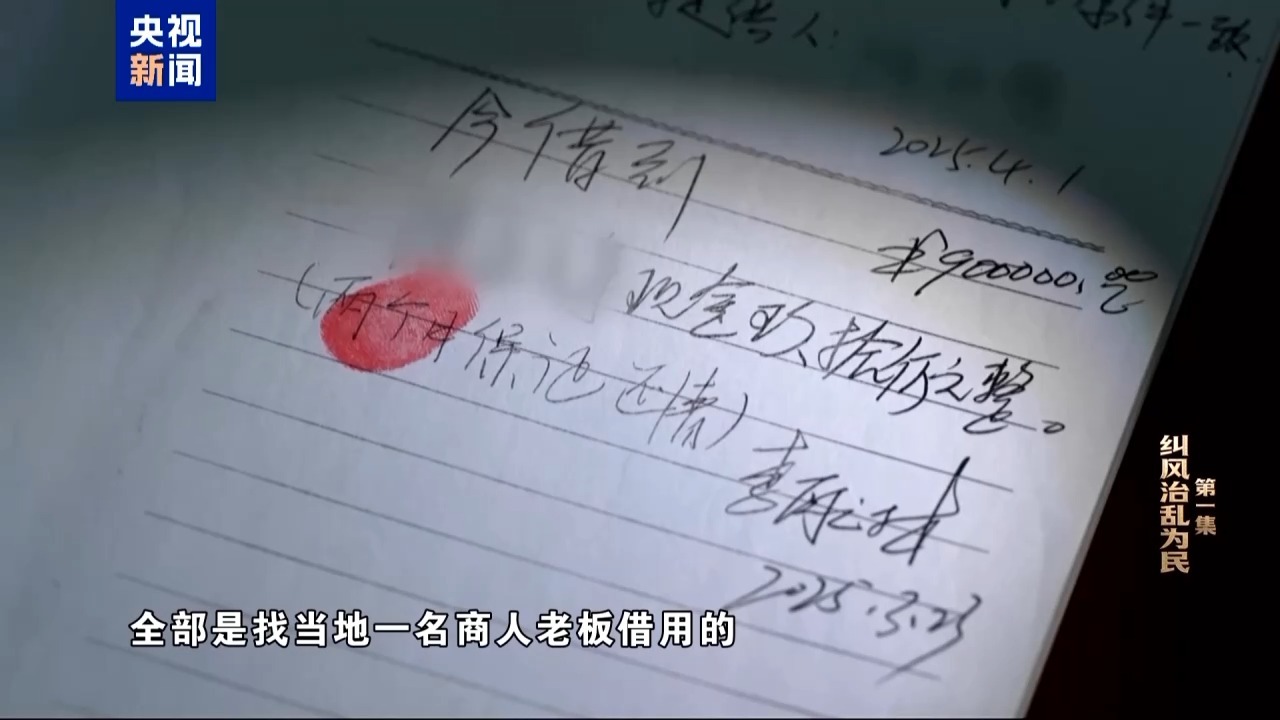 央视
新闻
提供人:
件一致.
2025.4.1
今借到
¥900000.00
现金玖拾万元整。
(两个月保证还清)
2025.3.23
第一集
纠风治乱为民
全部是找当地一名商人老板借用的